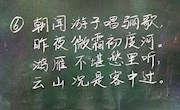 ⑥ 朝闻游子唱骊歌,
昨夜微霜初度河。
鸿雁不堪愁里听,
云山况是客中过。